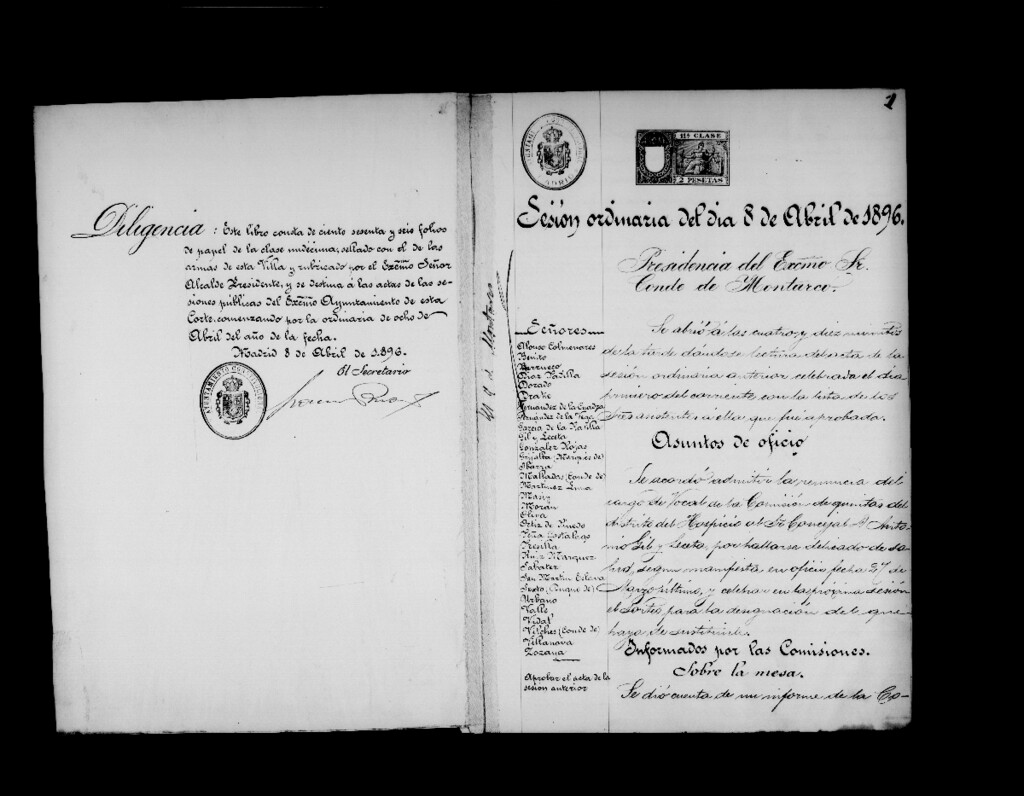 Diligencia: Este libro consta de ciento sesenta y seis folios
de papel de la clase undécima, sellado con el de las
armas de esta Villa y rubricado por el Excmo Señor
Alcalde Presidente, y se destina á las actas de las se-
siones públicas del Excmo Ayuntamiento de esta
Corte, comenzando por la ordinaria de ocho de
Abril del año de la fecha.
Madrid 8 de Abril de 1896.
El Secretario
1
11ª CLASE
2 PESETAS
Sesión ordinaria del dia 8 de Abril de 1896.
Presidencia del Excmo Sr.
Conde de Montarco.
Señores
Alonso Colmenares
Benito
Berrueco
Díaz Padilla
Dorado
Drake
Fernandez de la Cuadra
Fernández de la Vega
García de la Rasilla
Gil y Leceta
González Rojas
Grijalba (Marqués de)
Ibarra
Malladas (Conde de)
Martinez Luna
Masip
Morán
Oliva
Ortiz de Pinedo
Peña Costalago
Presilla
Ruiz Marquez
Sabater
San Martín Esteva
Sexto (Duque de)
Urbano
Valle
Vidal
Vilches (Conde de)
Villanova
Zozaya
Aprobar el acta de la
sesión anterior
Se abrió á las cuatro y diez minutos
de la tarde dándose lectura del acta de la
sesión ordinaria anterior celebrada el dia
primero del corriente, con la lista de los
Sres asistentes á ella que fué aprobada.
Asuntos de oficio
Se acordó admitir la renuncia del
cargo de Vocal de la Comisión de quintas del
distrito del Hospicio al Sr Concejal D. Anto-
nio Gil y Leceta, por hallarse delicado de sa-
lud, segun manifiesta en oficio fecha 27 de
Marzo último, y celebrar en la próxima sesión
el sorteo para la designación del que
haya de sustituirle.
Informados por las Comisiones.
Sobre la mesa.
Se dió cuenta de un informe de la Co-